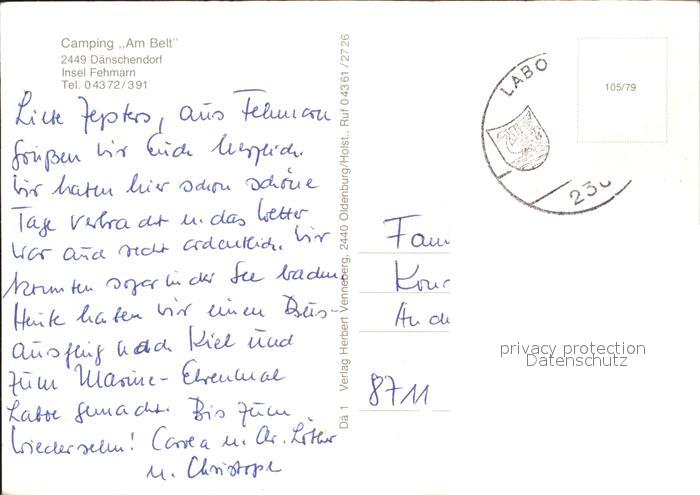 Camping „Am Belt"
2449 Dänschendorf
Insel Fehmarn
Tel. 04372/391
Liebe, aus Fehmarn
grüßen wir Euch herzlich.
Wir haben hier schon schöne
Tage verbracht u. das Wetter
war auch recht ordentlich. Wir
konnten sogar in der See baden.
Heute haben wir einen Bus-
ausflug nach Kiel und
zum Marine-Ehrenmal
Laboe gemacht. Bis zum
Wiedersehn! u.
u. Christoph
Dä 1 Verlag Herbert Venneberg, 2440 Oldenburg/Holst., Ruf 04361/2726
LABO
105/79
230
Fam
An de
8711
privacy protection
Datenschutz